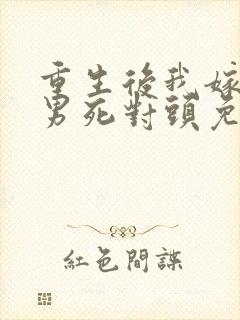 重生後我嫁
男死對頭免
紅色間諜